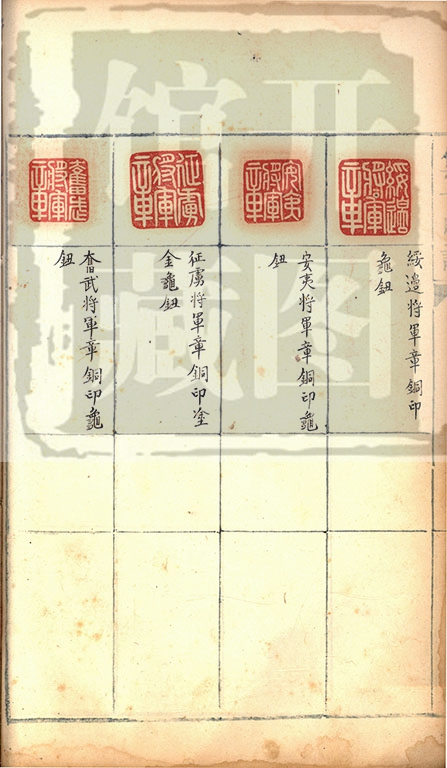 綏邊將軍章
綏邊將軍章銅印
龜鈕
安夷將軍章
安夷將軍章銅印龜
鈕
征虜將軍章
征虜將軍章銅印塗
金龜鈕
奮武將軍章
奮武將軍章銅印龜
鈕
开图
馆藏